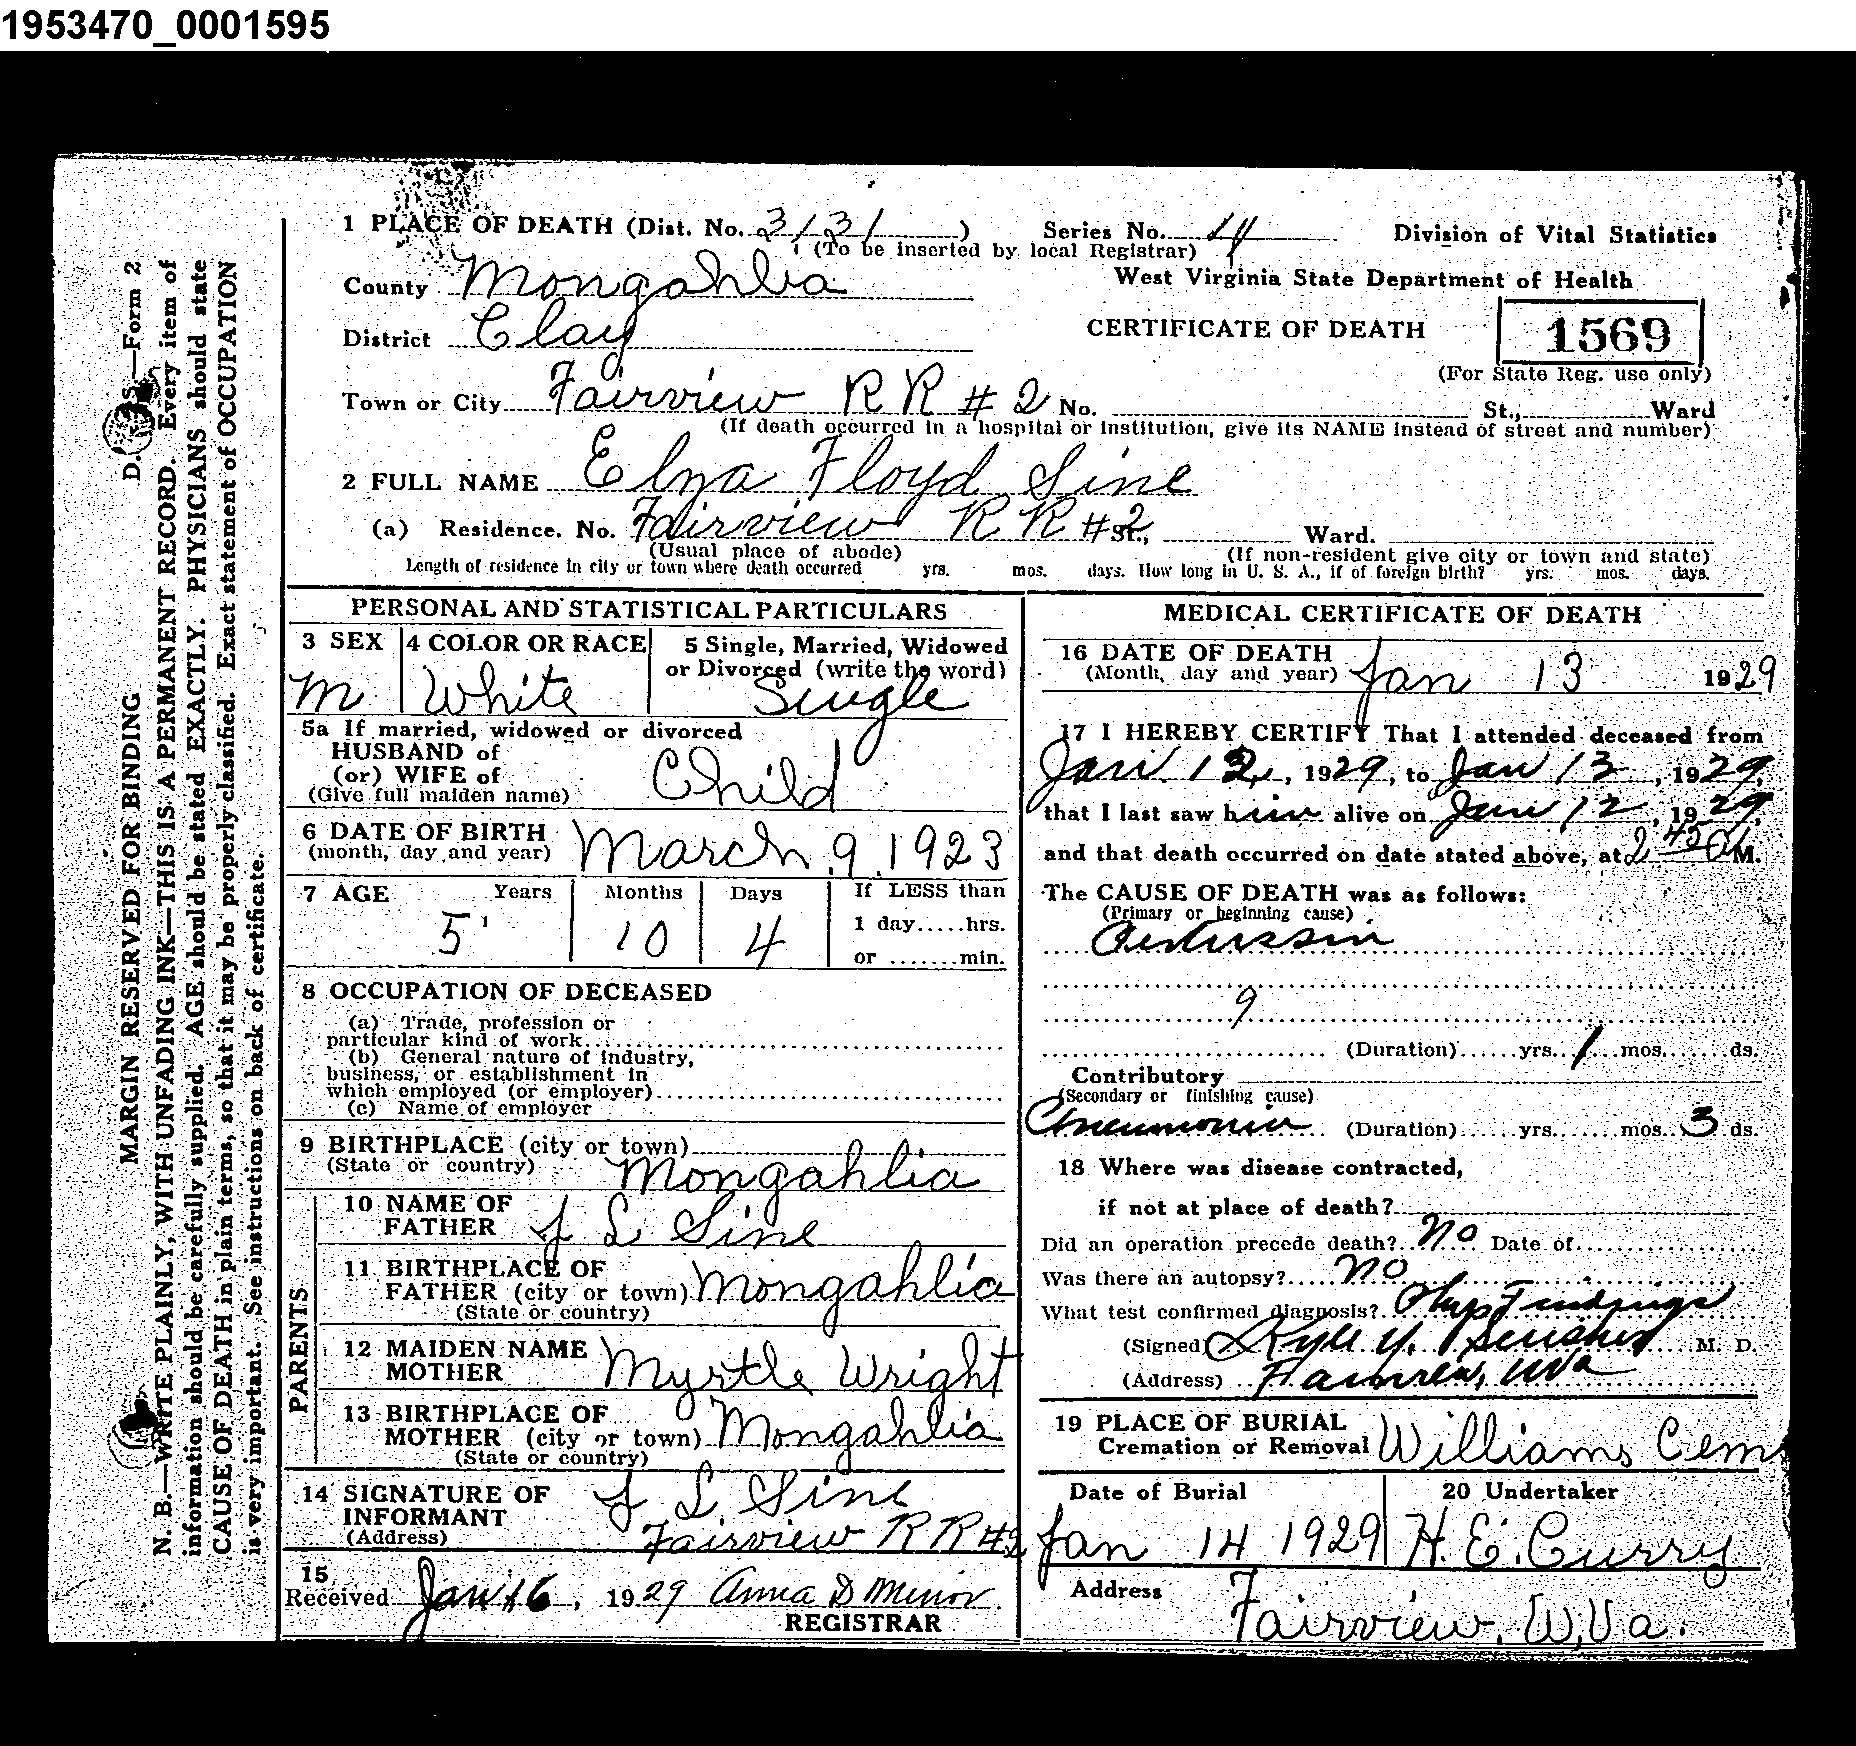 1953470_0001595
1 PLACE OF DEATH (Dist. No. 3131) Series No. 14 Division of Vital Statistics
(To be inserted by local Registrar)
County Mongahlia West Virginia State Department of Health
District Clay CERTIFICATE OF DEATH 1569
(For State Reg. use only)
Town or City Fairview RR #2 No. St., Ward
(If death occurred in a hospital or institution, give its NAME instead of street and number)
2 FULL NAME Elza Floyd Sine
(a) Residence. No. Fairview RR #2 St., Ward.
(Usual place of abode) (If non-resident give city or town and state)
Length of residence in city or town where death occurred yrs. mos. days. How long in U. S. A., if of foreign birth? yrs. mos. days.
PERSONAL AND STATISTICAL PARTICULARS
3 SEX 4 COLOR OR RACE 5 Single, Married, Widowed
or Divorced (write the word)
M White Single
5a If married, widowed or divorced
HUSBAND of
(or) WIFE of Child
(Give full maiden name)
6 DATE OF BIRTH March 9 1923
(month, day and year)
7 AGE Years Months Days If LESS than
5 10 4 1 day.....hrs.
or .......min.
8 OCCUPATION OF DECEASED
(a) Trade, profession or
particular kind of work
(b) General nature of industry,
business, or establishment in
which employed (or employer)
(c) Name of employer
9 BIRTHPLACE (city or town)
(State or country) Mongahlia
PARENTS
10 NAME OF
FATHER J L Sine
11 BIRTHPLACE OF
FATHER (city or town) Mongahlia
(State or country)
12 MAIDEN NAME
MOTHER Myrtle Wright
13 BIRTHPLACE OF
MOTHER (city or town) Mongahlia
(State or country)
14 SIGNATURE OF
INFORMANT J L Sine
(Address) Fairview RR #2
15
Received Jan 16, 1929 Anna D Minor
REGISTRAR
MEDICAL CERTIFICATE OF DEATH
16 DATE OF DEATH
(Month, day and year) Jan 13 1929
17 I HEREBY CERTIFY That I attended deceased from
Jan. 12, 1929, to Jan 13, 1929,
that I last saw him alive on Jan 12, 1929,
and that death occurred on date stated above, at 2 M.
The CAUSE OF DEATH was as follows:
(Primary or beginning cause)
Pertussin
9
(Duration) yrs. 1 mos. ds.
Contributory
(Secondary or finishing cause)
Pneumonia (Duration) yrs. mos. 3 ds.
18 Where was disease contracted,
if not at place of death?
Did an operation precede death? No Date of
Was there an autopsy? No
What test confirmed diagnosis? Phys Findings
(Signed) Kyle M. D.
(Address) Fairview, WVa
19 PLACE OF BURIAL
Cremation or Removal Williams Cem
Date of Burial 20 Undertaker
Jan 14 1929 H. E. Curry
Address
Fairview, W, Va.
MARGIN RESERVED FOR BINDING
D. S.—Form 2
N. B.—WRITE PLAINLY, WITH UNFADING INK—THIS IS A PERMANENT RECORD. Every item of
information should be carefully supplied. AGE should be stated EXACTLY. PHYSICIANS should state
CAUSE OF DEATH in plain terms, so that it may be properly classified. Exact statement of OCCUPATION
is very important. See instructions on back of certificate.